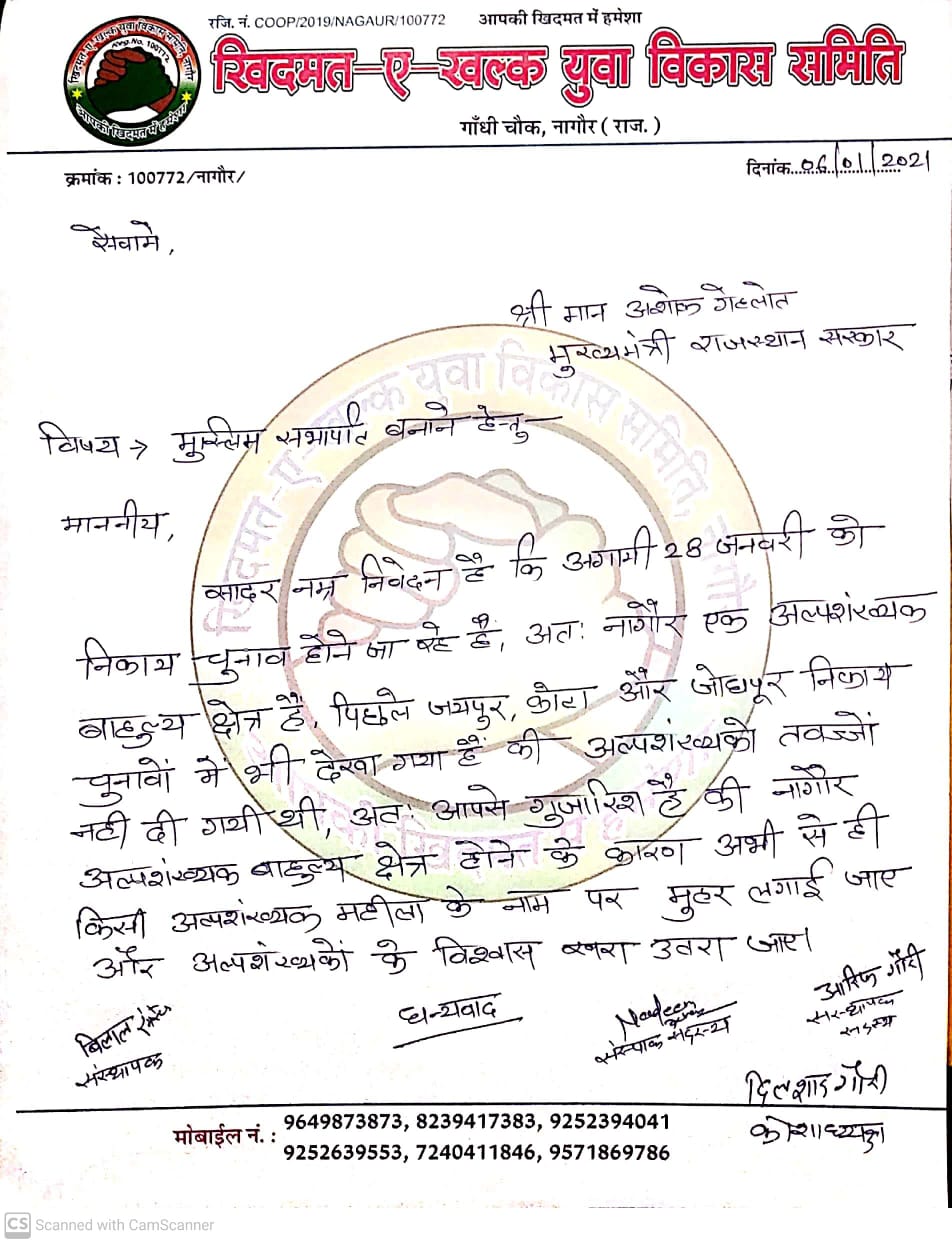 रजि. नं. COOP/2019/NAGAUR/100772 आपकी खिदमत में हमेशा
खिदमत-ए-खल्क युवा विकास समिति
गाँधी चौक, नागौर ( राज. )
क्रमांक : 100772/नागौर/
दिनांक...06/01/2021
सेवामे,
श्री मान अशोक गेहलोत
मुख्यमंत्री राजस्थान सरकार
विषय → मुस्लिम सभापति बनाने हेन्तु
माननीय,
सादर नम्र निवेदन है कि अगामी 28 जनवरी को
निकाय चुनाव होंने जा रहे है, अतः नागौर एक अल्पशंख्यक
बाहुल्य क्षेत्र है, पिछले जयपुर, कोटा और जोधपूर निकाय
चुनावों में भी देखा गया है की अल्पशंख्यको तवज्जों
नही दी गयी थी, अतः आपसे गुजारिश है की नागौर
अल्पशंख्यक बाहुल्य क्षेत्र होने के कारण अभी से ही
किसी अल्पशंख्यक महीला के नाम पर मुहर लगाई जाए
और अल्पशंख्यकों के विश्वास खरा उतरा जाए।
धन्यवाद
बिलाल
संस्थापक
Nadeem
संस्थापक सदस्य
आरिफ गौरी
संस्थापक
सदस्य
दिलशाद गौरी
कोशाध्यक्ष
मोबाईल नं. : 9649873873, 8239417383, 9252394041
9252639553, 7240411846, 9571869786
CS Scanned with CamScanner